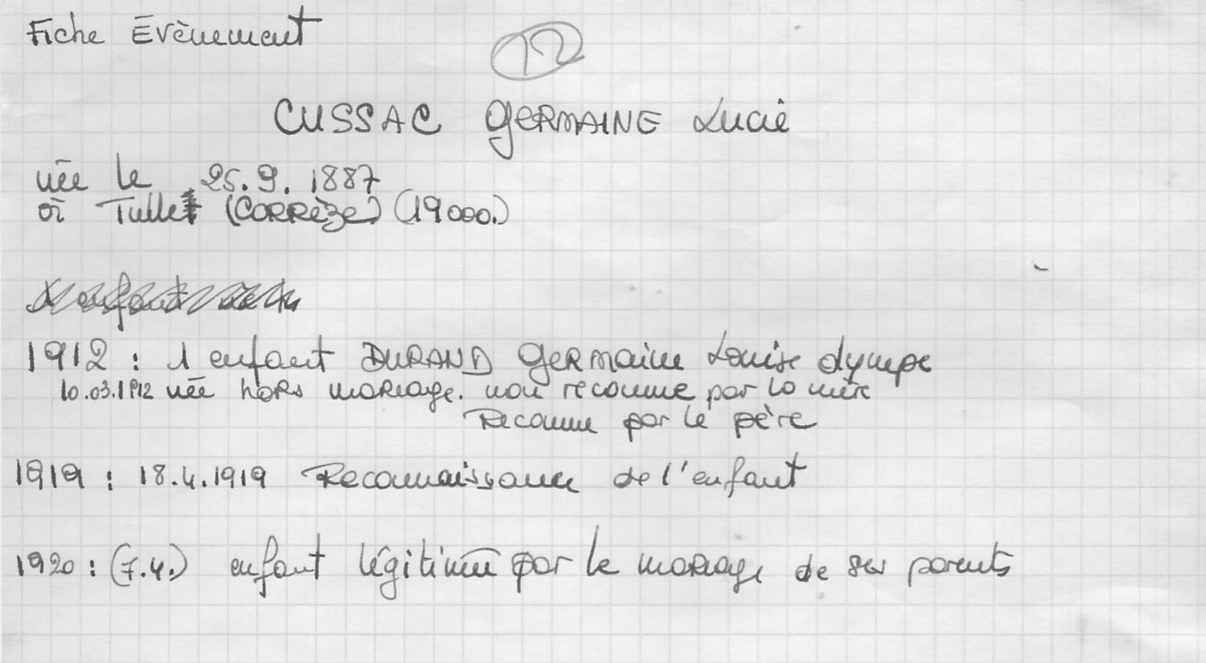 Fiche Évènement
12
CUSSAC GERMAINE Lucie
née le 25.9.1887
à Tulle (CORRÈZE) (19000.)
1912 : 1 enfant DURAND Germaine Louise Olympe
10.03.1912 née hors mariage. non reconnue par la mère
Reconnu par le père
1919 : 18.4.1919 Reconnaissance de l'enfant
1920 : (7.4.) enfant légitimé par le mariage de ses parents